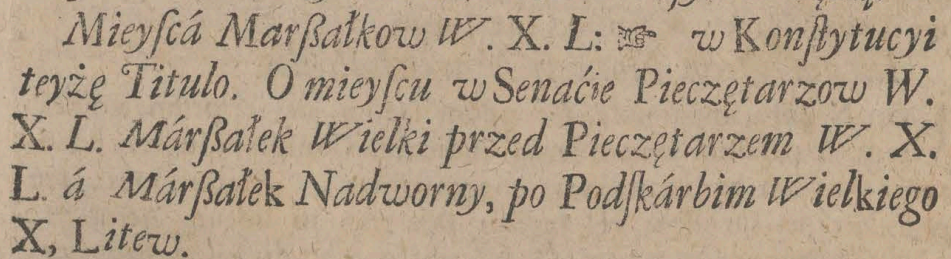 Mieyſcá Marßałkow W. X. L: ☞ w Konſtytucyi
teyżę Titulo. O mieyſcu w Senaćie Pieczętarzow W.
X. L. Márßałek Wielki przed Pieczętarzem W. X.
L. á Márßałek Nadworny, po Podſkárbim Wielkiego
X, Litew.